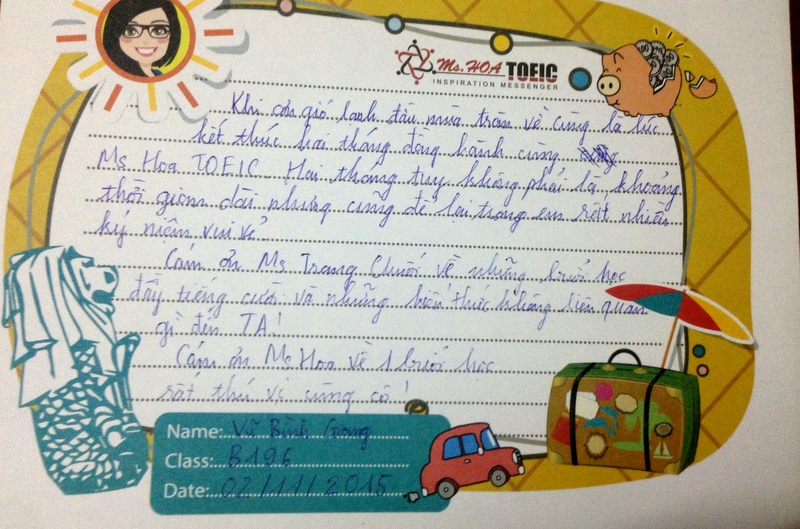 Ms. HOA TOEIC
INSPIRATION MESSENGER
Khi cơn gió lạnh đầu mùa tràn về cũng là lúc
kết thúc hai tháng đồng hành cùng
Ms Hoa TOEIC Hai tháng tuy không phải là khoảng
thời gian dài nhưng cũng để lại trong em rất nhiều
kỷ niệm vui vẻ
Cám ơn Ms Trang Chuối về những buổi học
đầy tiếng cười và những kiến thức không liên quan
gì đến TA!
Cám ơn Ms Hoa về 1 buổi học
rất thú vị cùng cô!
Name: Vũ Bình Giang
Class: B196
Date: 02/11/2015